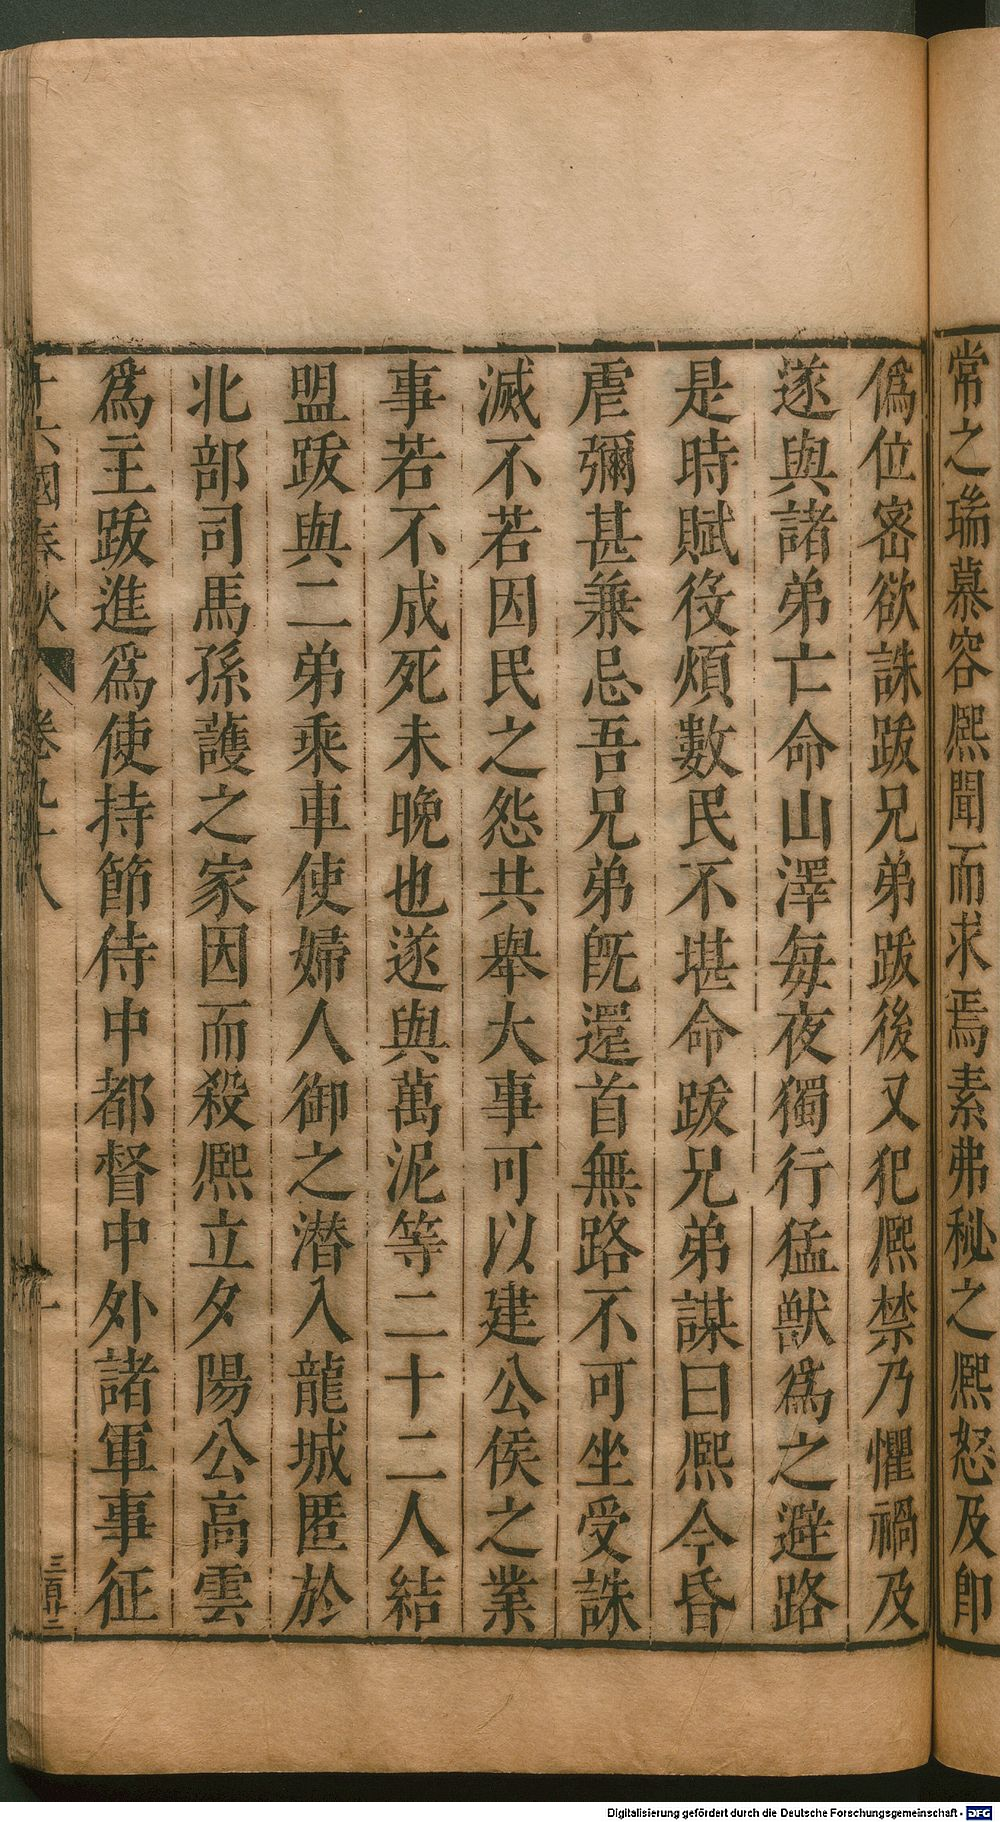 常之瑞慕容熙聞而求焉素弗秘之熙怒及卽
僞位密欲誅跋兄弟跋後又犯熙禁乃懼禍及
遂與諸弟亡命山澤每夜獨行猛獸爲之避路
是時賦役煩數民不堪命跋兄弟謀曰熙今昏
虐彌甚兼忌吾兄弟旣還首無路不可坐受誅
滅不若因民之怨共舉大事可以建公侯之業
事若不成死未晚也遂與萬泥等二十二人結
盟跋與二弟乘車使婦人御之潛入龍城匿於
北部司馬孫護之家因而殺熙立夕陽公高雲
爲主跋進爲使持節侍中都督中外諸軍事征
十六國春秋 卷九十八 一 三百廿二
Digitalisierung gefördert durch die Deutsche Forschungsgemeinschaft - DFG